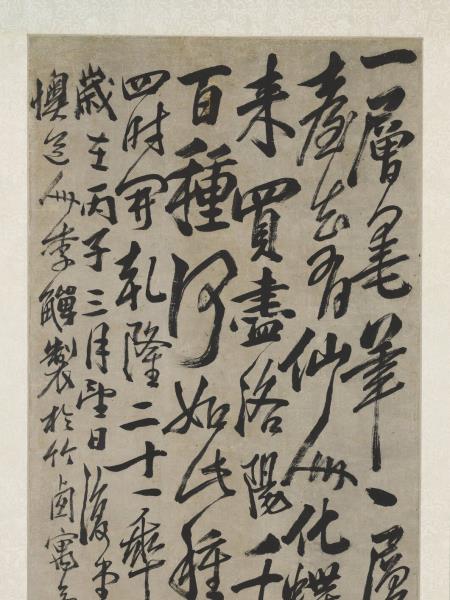 一層筆一層
臺有仙人化蝶
來買盡洛陽一十
百種何如此種
四時開乾隆二十一年
歲在丙子三月望日復堂
懊道人李鱓製於竹西寓